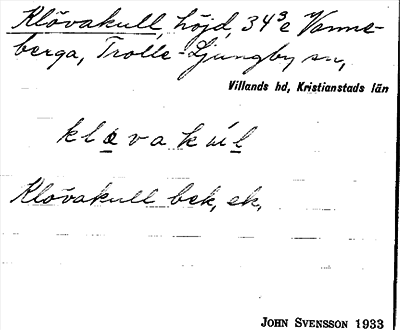 Klövakull, höjd, 34³e Vanne-
berga, Trolle-Ljungby sn,
Villands hd, Kristianstads län
kløvakúl
Klövakull bek, ek.
JOHN SVENSSON 1933